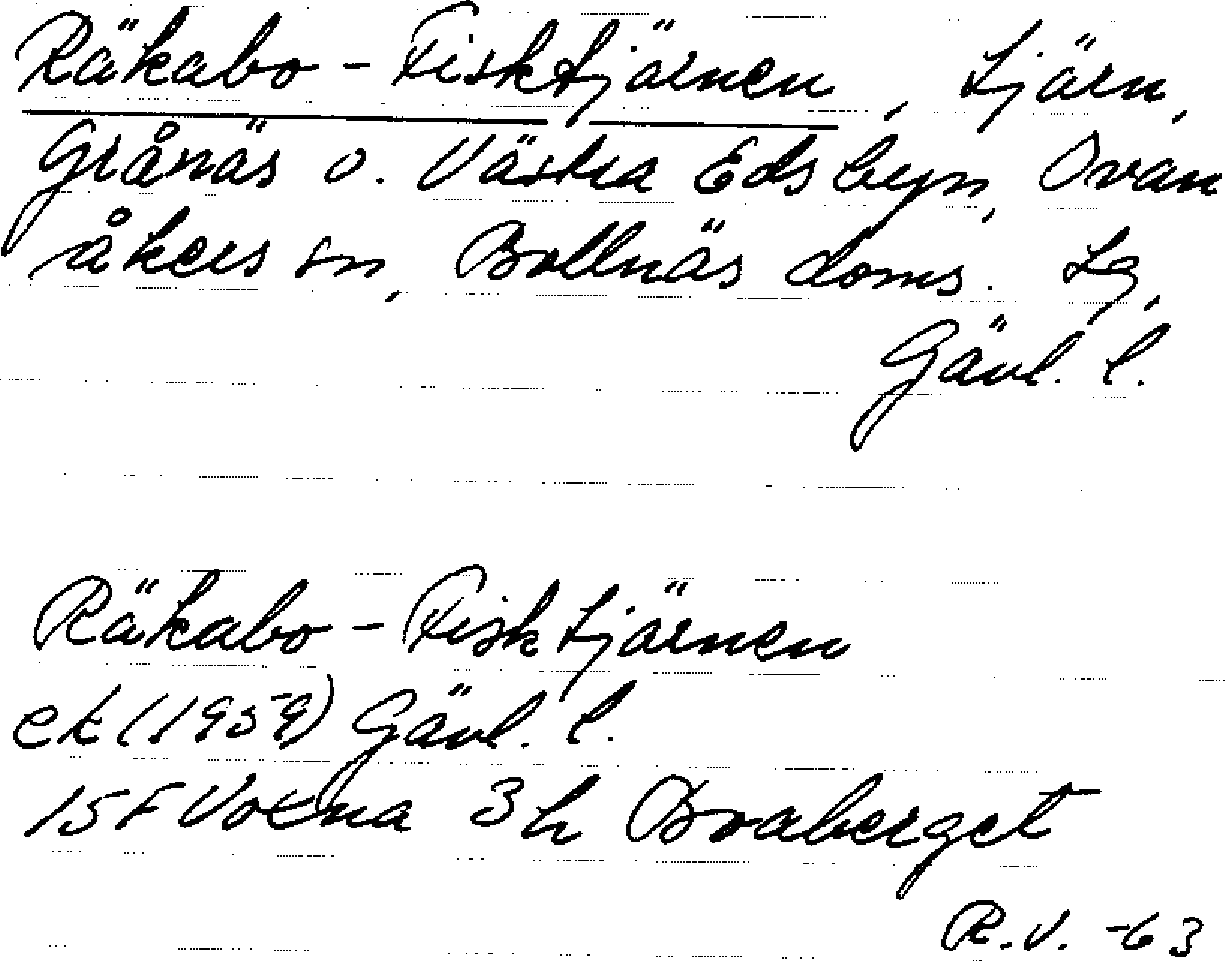 Räkabo-Fisktjärnen, tjärn,
Grånäs o. Västra Edsbyn, Ovan
åkers sn, Bollnäs doms. Lg,
Gävl. l.
Räkabo-Fisktjärnen
ek (1959) Gävl. l.
15F Voxna 3h Broaberget
R.V. -63